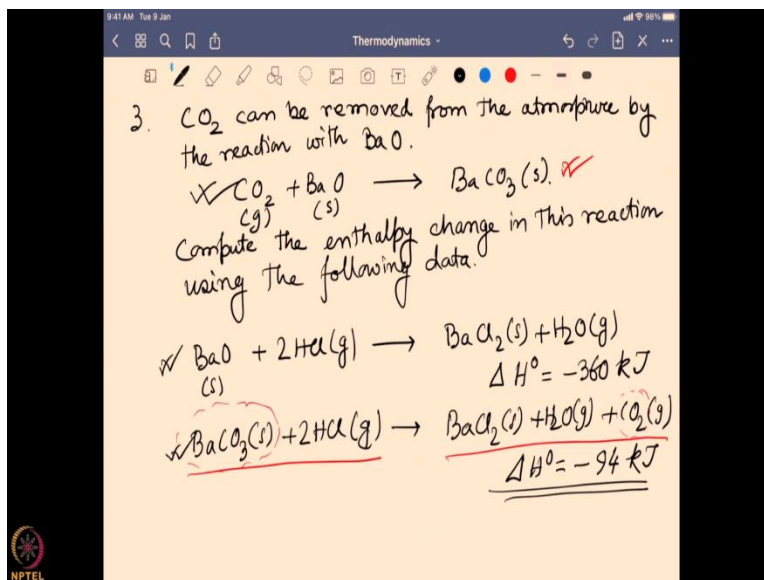 9:41 AM Tue 9 Jan
98%
Thermodynamics
3. CO2 can be removed from the atmosphere by
the reaction with BaO.
CO2 + BaO → BaCO3(s).
(g) (s)
Compute the enthalpy change in this reaction
using the following data.
BaO + 2HCl(g) → BaCl2(s) + H2O(g)
(s)
ΔH° = -360 kJ
BaCO3(s) + 2HCl(g) → BaCl2(s) + H2O(g) + CO2(g)
ΔH° = -94 kJ
NPTEL